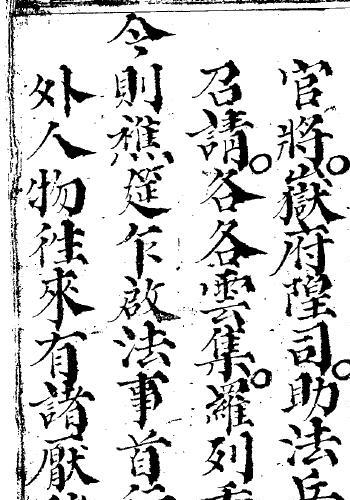 官將。嶽府隍司。助法兵
召請。各各雲集。羅列
今則醮筵乍啟法事首
外人物徃來有諸厭